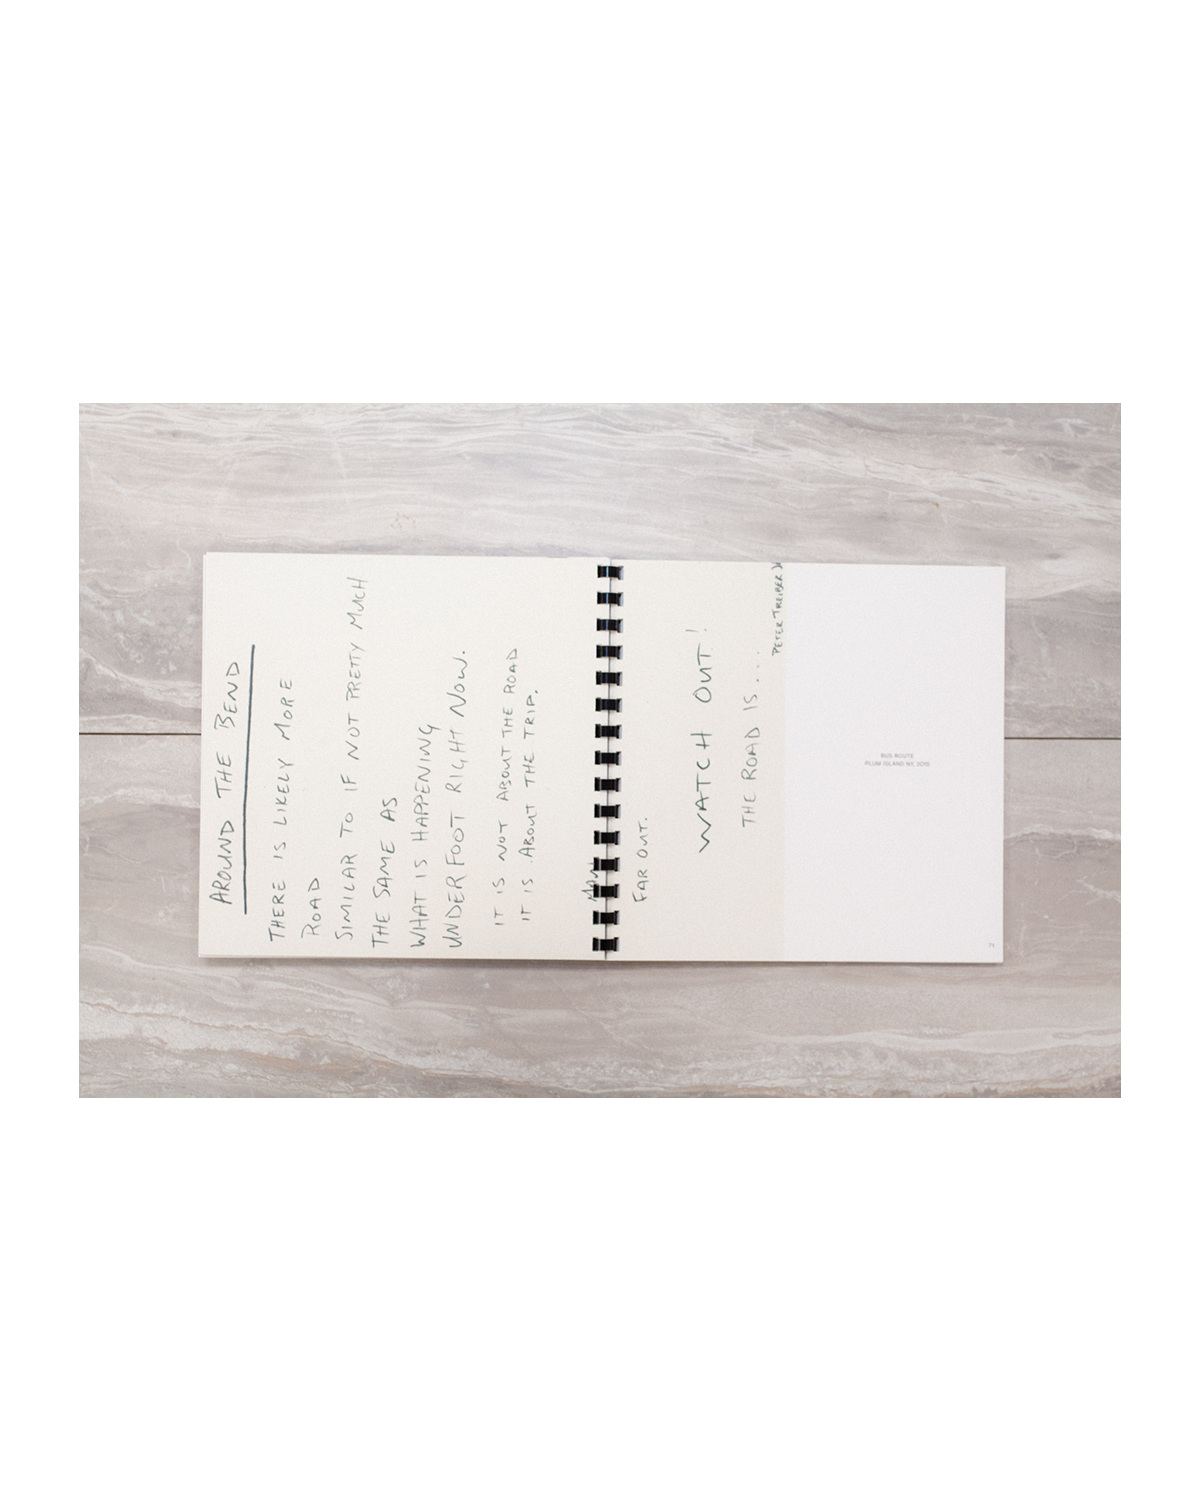 AROUND THE BEND
THERE IS LIKELY MORE
ROAD
SIMILAR TO IF NOT PRETTY MUCH
THE SAME AS
WHAT IS HAPPENING
UNDERFOOT RIGHT NOW.
IT IS NOT ABOUT THE ROAD
IT IS ABOUT THE TRIP.
FAR OUT.
WATCH OUT!
THE ROAD IS....
PETER TREIBER
BUS ROUTE
PLUM ISLAND NY, 2018